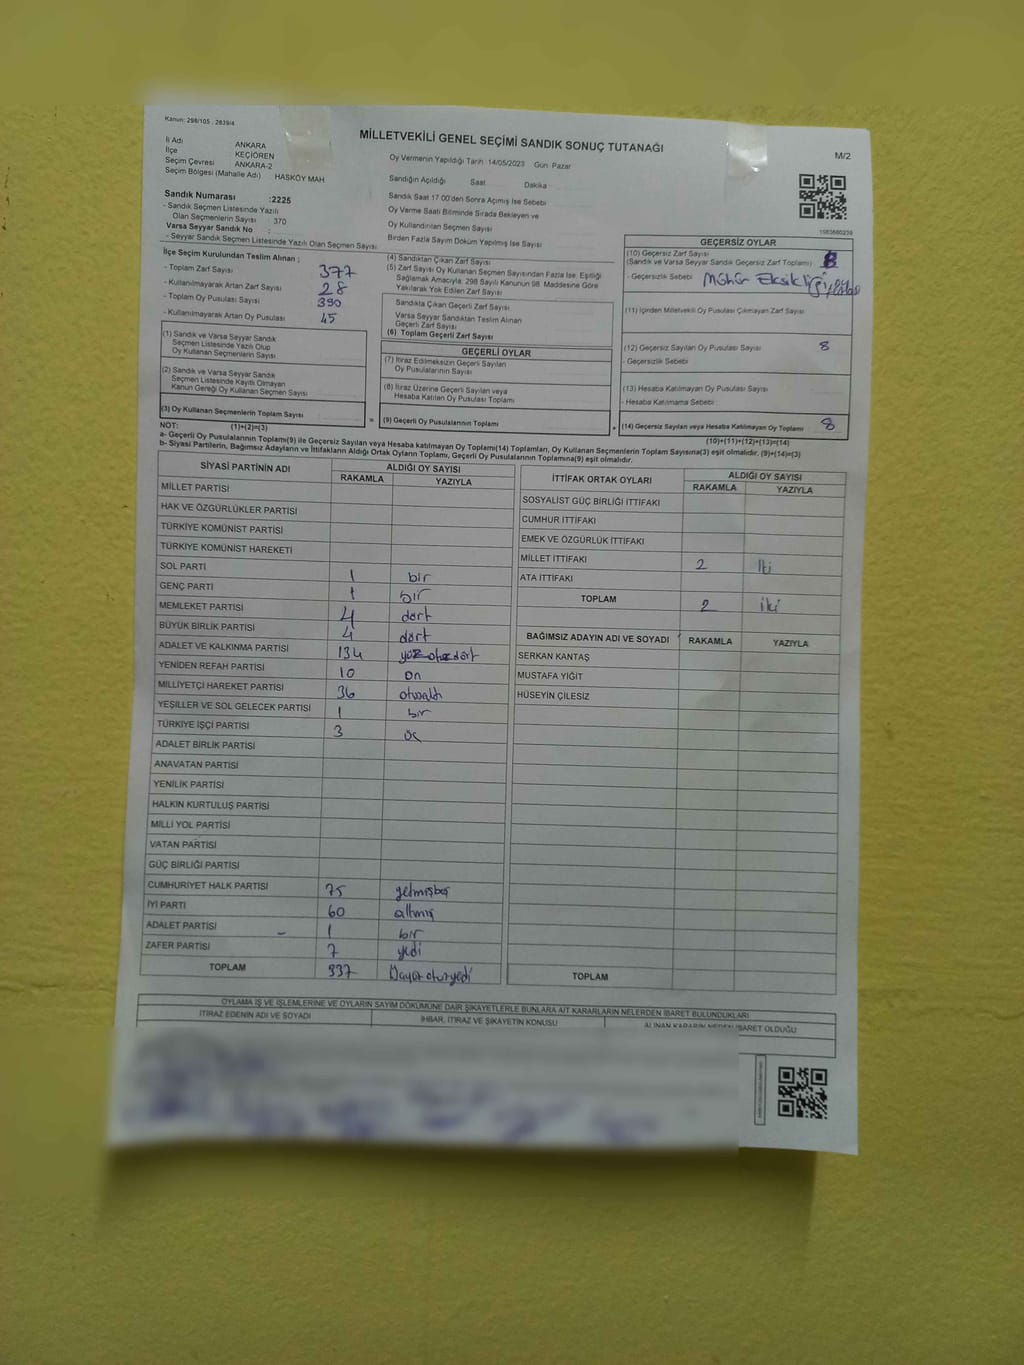 Kanun: 298/105 , 2839/4
MİLLETVEKİLİ GENEL SEÇİMİ SANDIK SONUÇ TUTANAĞI
M/2
İl Adı ANKARA
İlçe KEÇİÖREN
Seçim Çevresi ANKARA-2
Seçim Bölgesi (Mahalle Adı) HASKÖY MAH
Oy Vermenin Yapıldığı Tarih 14/05/2023 Gün Pazar
Sandığın Açıldığı Saat Dakika
Sandık Numarası :2225
- Sandık Seçmen Listesinde Yazılı
Olan Seçmenlerin Sayısı : 370
Varsa Seyyar Sandık No :
- Seyyar Sandık Seçmen Listesinde Yazılı Olan Seçmen Sayısı
Sandık Saat 17.00'den Sonra Açılmış İse Sebebi
Oy Verme Saati Bitiminde Sırada Bekleyen ve
Oy Kullandırılan Seçmen Sayısı
Birden Fazla Sayım Döküm Yapılmış İse Sayısı
1983680239
İlçe Seçim Kurulundan Teslim Alınan ;
- Toplam Zarf Sayısı 377
- Kullanılmayarak Artan Zarf Sayısı 28
- Toplam Oy Pusulası Sayısı 390
- Kullanılmayarak Artan Oy Pusulası 45
(1) Sandık ve Varsa Seyyar Sandık
Seçmen Listesinde Yazılı Olup
Oy Kullanan Seçmenlerin Sayısı
(2) Sandık ve Varsa Seyyar Sandık
Seçmen Listesinde Kayıtlı Olmayan
Kanun Gereği Oy Kullanan Seçmen Sayısı
(3) Oy Kullanan Seçmenlerin Toplam Sayısı
(4) Sandıktan Çıkan Zarf Sayısı
(5) Zarf Sayısı Oy Kullanan Seçmen Sayısından Fazla İse, Eşitliği
Sağlamak Amacıyla; 298 Sayılı Kanunun 98. Maddesine Göre
Yakılarak Yok Edilen Zarf Sayısı
Sandıkta Çıkan Geçerli Zarf Sayısı
Varsa Seyyar Sandıktan Teslim Alınan
Geçerli Zarf Sayısı
(6) Toplam Geçerli Zarf Sayısı
GEÇERLİ OYLAR
(7) İtiraz Edilmeksizin Geçerli Sayılan
Oy Pusulalarının Sayısı
(8) İtiraz Üzerine Geçerli Sayılan veya
Hesaba Katılan Oy Pusulası Toplamı
= (9) Geçerli Oy Pusulalarının Toplamı +
GEÇERSİZ OYLAR
(10) Geçersiz Zarf Sayısı
(Sandık ve Varsa Seyyar Sandık Geçersiz Zarf Toplamı)
- Geçersizlik Sebebi Mühür Eksikliği
(11) İçinden Milletvekili Oy Pusulası Çıkmayan Zarf Sayısı
(12) Geçersiz Sayılan Oy Pusulası Sayısı 8
- Geçersizlik Sebebi
(13) Hesaba Katılmayan Oy Pusulası Sayısı
- Hesaba Katılmama Sebebi
(14) Geçersiz Sayılan veya Hesaba Katılmayan Oy Toplamı 8
NOT: (1)+(2)=(3)
(10)+(11)+(12)+(13)=(14)
a- Geçerli Oy Pusulalarının Toplamı(9) ile Geçersiz Sayılan veya Hesaba katılmayan Oy Toplamı(14) Toplamları, Oy Kullanan Seçmenlerin Toplam Sayısına(3) eşit olmalıdır. (9)+(14)=(3)
b- Siyasi Partilerin, Bağımsız Adayların ve İttifakların Aldığı Ortak Oyların Toplamı, Geçerli Oy Pusulalarının Toplamına(9) eşit olmalıdır.
SİYASİ PARTİNİN ADI ALDIĞI OY SAYISI
RAKAMLA YAZIYLA
MİLLET PARTİSİ
HAK VE ÖZGÜRLÜKLER PARTİSİ
TÜRKİYE KOMÜNİST PARTİSİ
TÜRKİYE KOMÜNİST HAREKETİ
SOL PARTİ 1 bir
GENÇ PARTİ 1 bir
MEMLEKET PARTİSİ 4 dört
BÜYÜK BİRLİK PARTİSİ 4 dört
ADALET VE KALKINMA PARTİSİ 134 yüzotuzdört
YENİDEN REFAH PARTİSİ 10 on
MİLLİYETÇİ HAREKET PARTİSİ 36 otuzaltı
YEŞİLLER VE SOL GELECEK PARTİSİ 1 bir
TÜRKİYE İŞÇİ PARTİSİ 3 üç
ADALET BİRLİK PARTİSİ
ANAVATAN PARTİSİ
YENİLİK PARTİSİ
HALKIN KURTULUŞ PARTİSİ
MİLLİ YOL PARTİSİ
VATAN PARTİSİ
GÜÇ BİRLİĞİ PARTİSİ
CUMHURİYET HALK PARTİSİ 75 yetmişbeş
İYİ PARTİ 60 altmış
ADALET PARTİSİ - 1 bir
ZAFER PARTİSİ 7 yedi
TOPLAM 337
İTTİFAK ORTAK OYLARI ALDIĞI OY SAYISI
RAKAMLA YAZIYLA
SOSYALİST GÜÇ BİRLİĞİ İTTİFAKI
CUMHUR İTTİFAKI
EMEK VE ÖZGÜRLÜK İTTİFAKI
MİLLET İTTİFAKI 2 iki
ATA İTTİFAKI
TOPLAM 2 iki
BAĞIMSIZ ADAYIN ADI VE SOYADI RAKAMLA YAZIYLA
SERKAN KANTAŞ
MUSTAFA YİĞİT
HÜSEYİN ÇİLESİZ
TOPLAM
OYLAMA İŞ VE İŞLEMLERİNE VE OYLARIN SAYIM DÖKÜMÜNE DAİR ŞİKAYETLERLE BUNLARA AİT KARARLARIN NELERDEN İBARET BULUNDUKLARI
İTİRAZ EDENİN ADI VE SOYADI İHBAR, İTİRAZ VE ŞİKAYETİN KONUSU ALINAN KARARIN NEDEN İBARET OLDUĞU